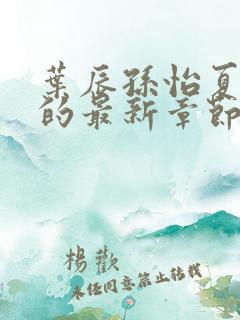 葉辰孫怡夏
的最新章節
楊歡
未经同意禁止转载